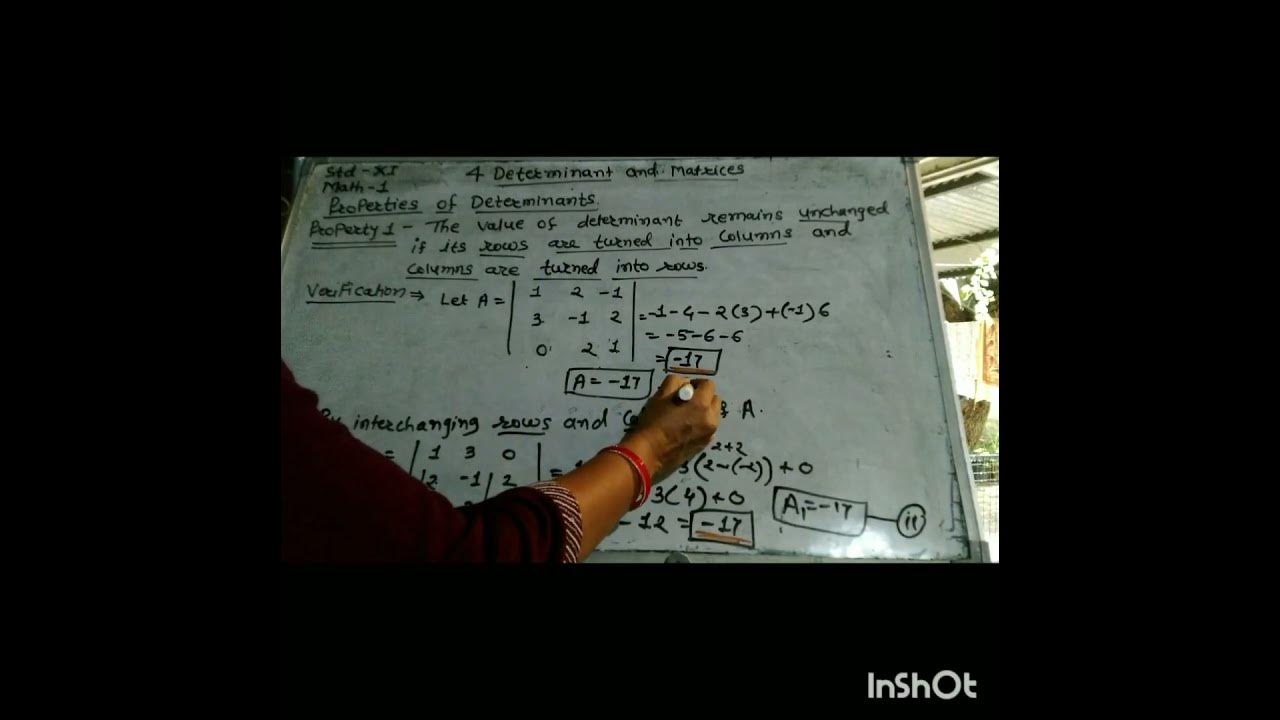 Std - XI 4 Determinant and Matrices
Math-1
Properties of Determinants.
Property 1 - The value of determinant remains unchanged
if its rows are turned into columns and
columns are turned into rows.
Verification ⇒ Let A = | 1 2 -1 |
| 3 -1 2 | = -1 - 4 - 2(3) + (-1) 6
= -5 - 6 - 6
| 0 2 1 |
= -17
A = -17
By interchanging rows and A.
2+2
= | 1 3 0 | =
3(2-(-2)) + 0
| 2 -1 2 |
3(4) + 0
A₁ = -17 (ii)
- 12 = -17
InShOt